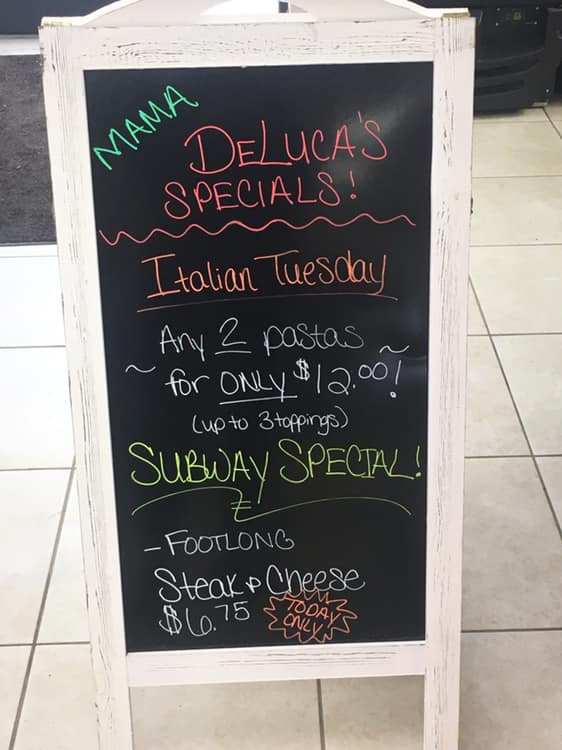 MAMA
DELUCA'S
SPECIALS!
Italian Tuesday
Any 2 pastas
~ for ONLY $12.00! ~
(up to 3 toppings)
SUBWAY SPECIAL!
- FOOTLONG
Steak & Cheese
$6.75
TODAY
ONLY!